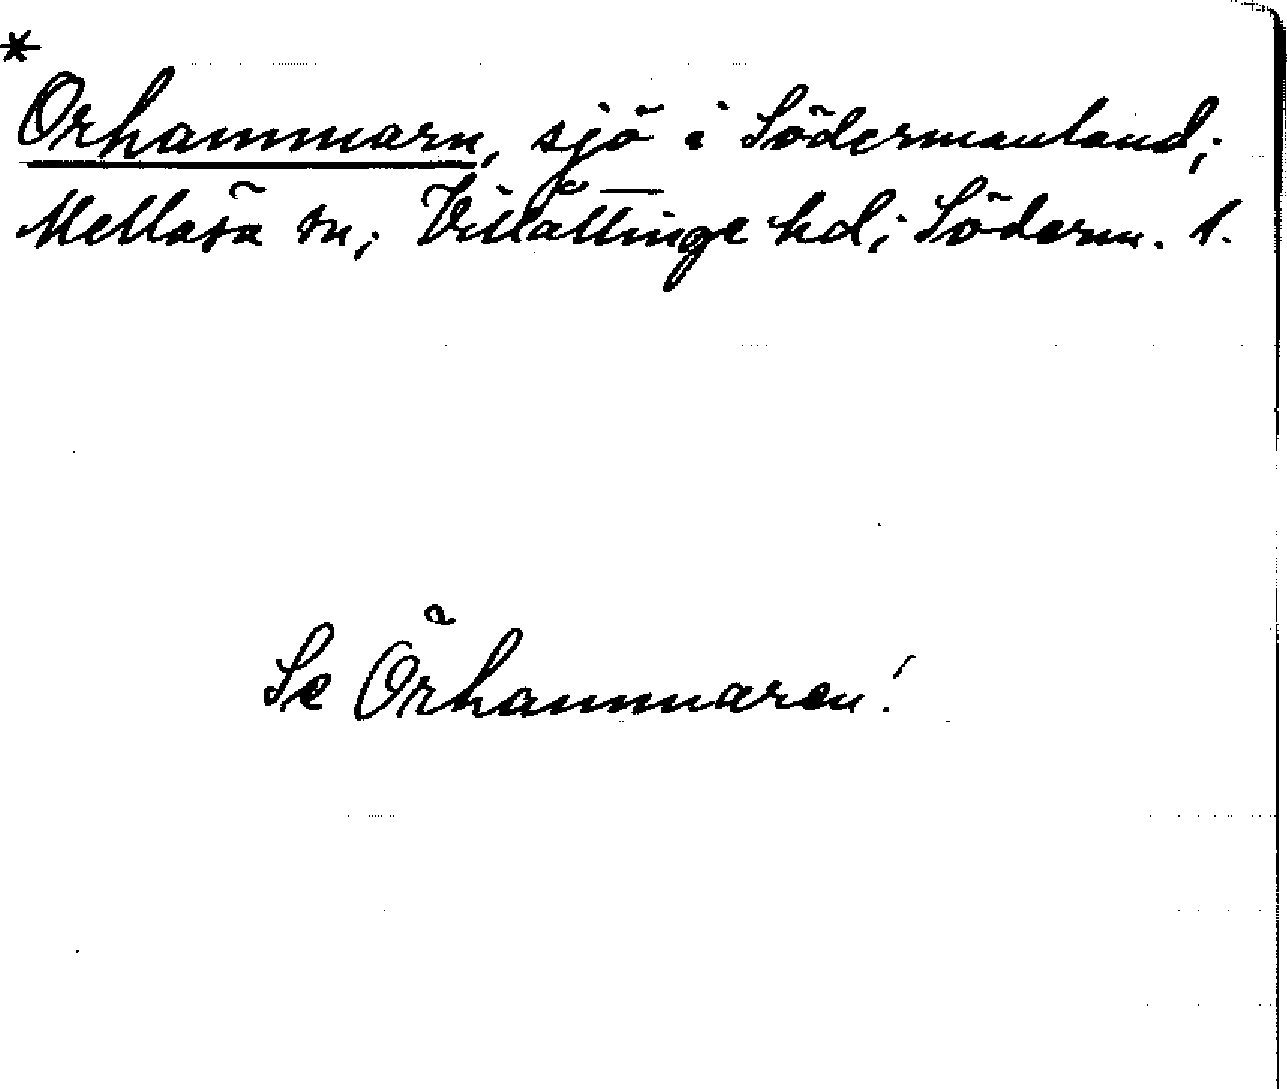 *
Orhammarn, sjö i Södermanland;
Mellösa sn; Villåttinge hd; Söderm. l.
Se Örhammaren!